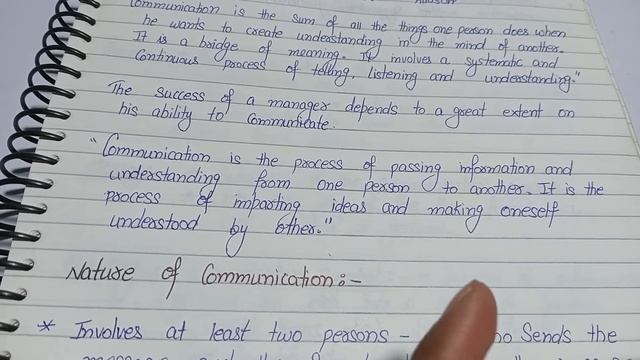 Communication is the sum of all the things one person does when
he wants to create understanding in the mind of another.
It is a bridge of meaning. It involves a systematic and
Continuous process of telling, listening and understanding."
The success of a manager depends to a great extent on
his ability to Communicate.
"Communication is the process of passing information and
understanding from one person to another. It is the
process of imparting ideas and making oneself
understood by other."
Nature of Communication:-
* Involves at least two persons - Sends the